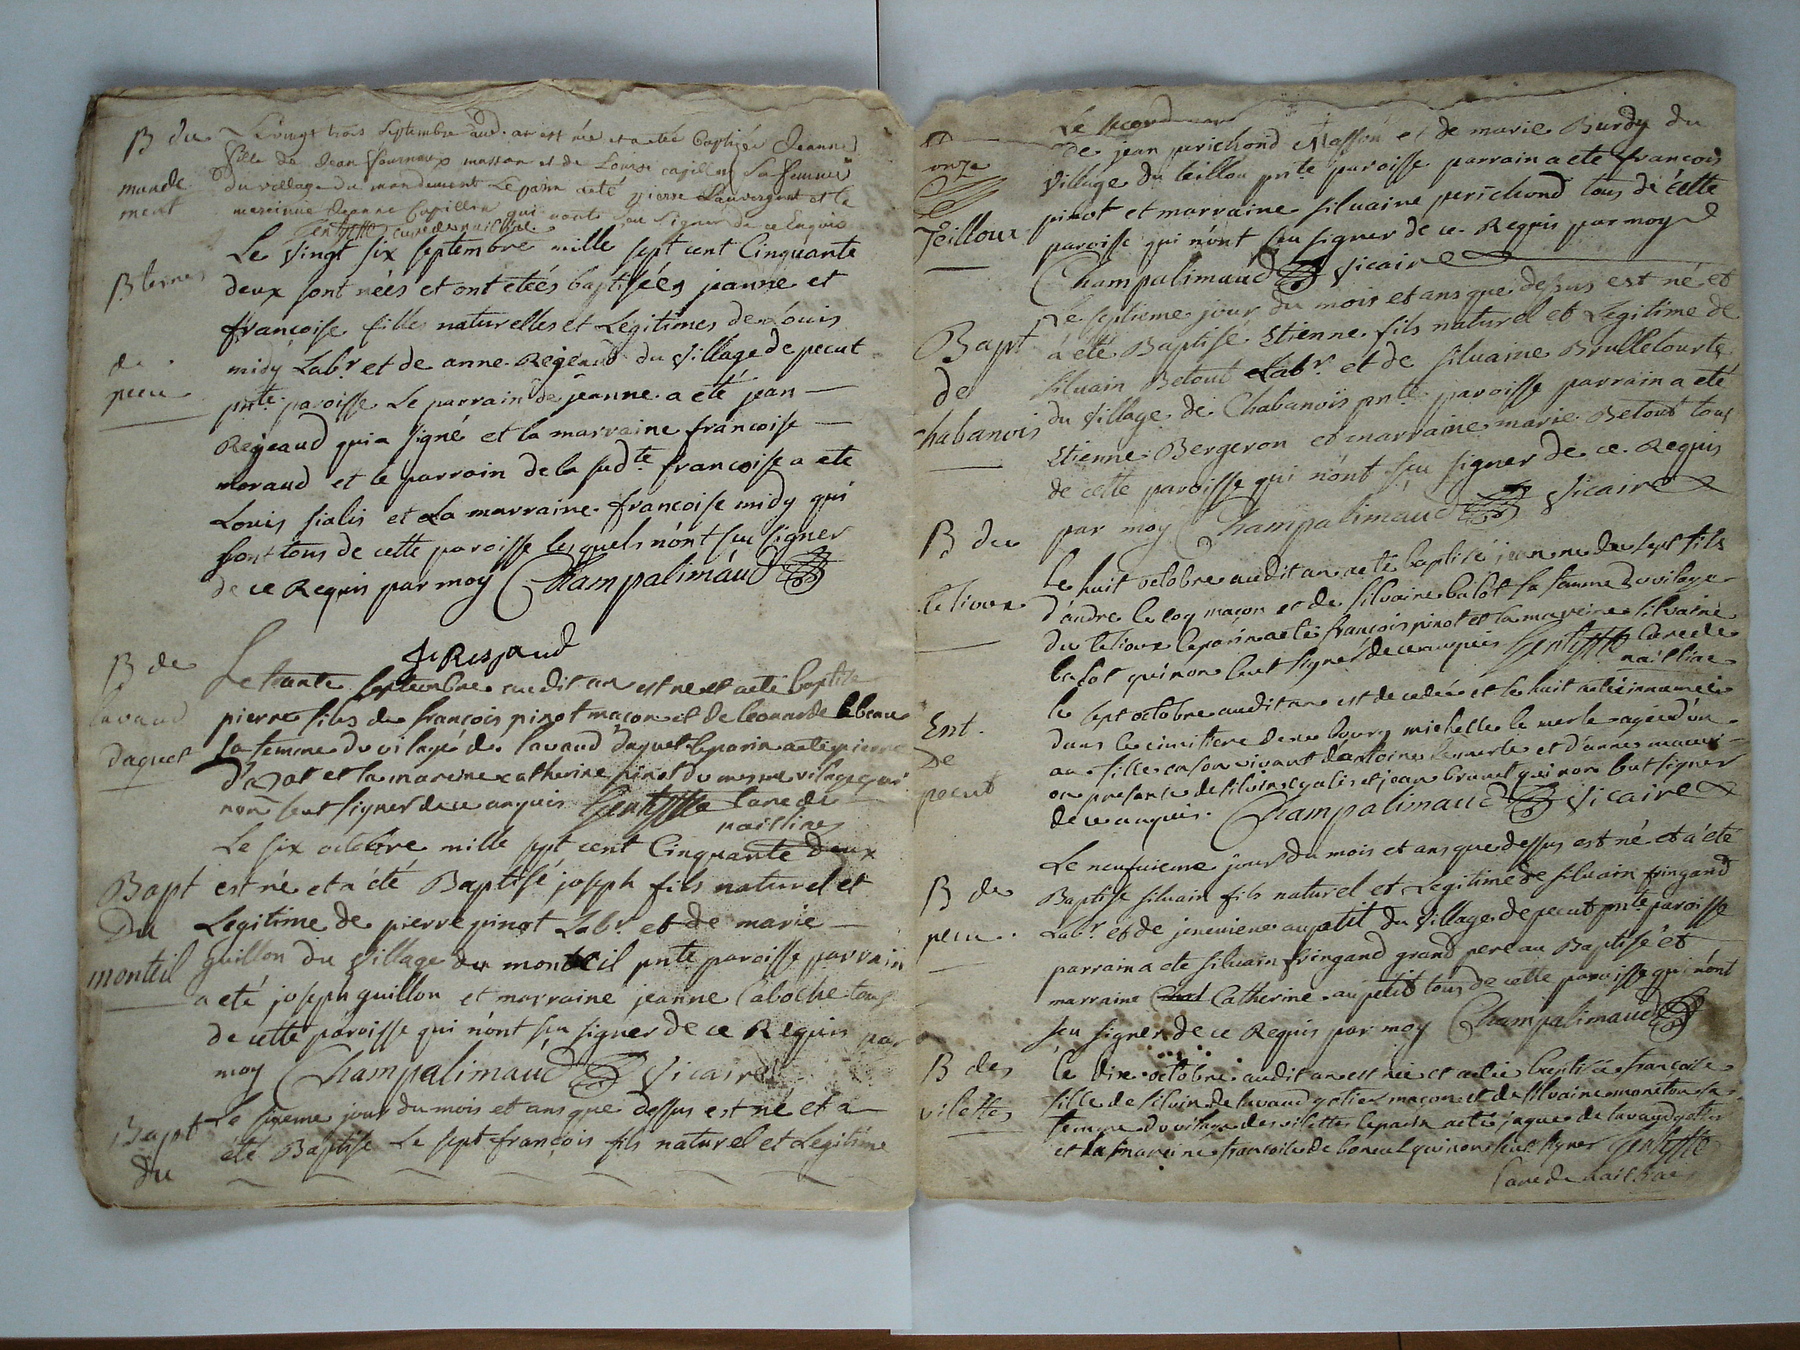 B du
mande
ment
Le vingt trois Septembre aud. an est née et a eté Baptizée Jeanne
fille de Jean fourneaux masson et de Louise capillon sa femme
du village du mandement Le parin a eté pierre Lauvergnat et la
mareinne Jeanne Capillon qui n'ont seu signer de ce Enquis
Gentysse curé de naillac
B bernes
de
pecu
Le vingt six septembre mille sept cent Cinquante
deux sont néés et ont etéés baptiséés jeanne et
francoise filles naturelles et Legitimes de Louis
midy Labr. et de anne Rejeaud du village de pecut
pnte. paroisse Le parrain de jeanne a eté jean
Rejeaud qui a signé et la marraine francoise
moraud et le parrain de la sudte. francoise a eté
Louis sialis et La marraine francoise midy qui
sont tous de cette paroisse lesquels n'ont seu signer
de ce Requis par moy Champalimaud
J Rejaud
B de
lavaud
daquet
Le trante septembre audit an est ne et a eté baptise
pierre fils de francois pinot maçon et de leonarde lebeau
sa femme du vilage de lavaud daquet le parin a eté pierre
dazat et la mareine catherine pinot du mesme vilage qui
non seut signer de ce anquis Gentysse Cure de
naillac
Bapt
Du
monteil
Le six octobre mille sept cent Cinquante deux
est né et a été Baptisé joseph fils naturel et
Legitime de pierre pinot Labr. et de marie
guillon du village du monteil pnte paroisse parrain
a eté joseph guillon et marraine jeanne Caboche tous
de cette paroisse qui n'ont seu signer de ce Requis par
moy Champalimaud vicaire
Bapt
du
Le sixeme jour du mois et ans que dessus est né et a
été Baptise Le sept françois fils naturel et Legitime
Teilloux
Le second
de jean perichond Masson et de marie Burdy du
village du teillou pnte paroisse parrain a eté francois
pinot et marraine silvaine perichond tous de cette
paroisse qui n'ont seu signer de ce Requis par moy
Champalimaud vicaire
Bapt
de
Chabanois
Le septieme jour du mois et ans que dessus est né et
a été Baptisé Etienne fils naturel et Legitime de
silvain Betout Labr. et de silvaine Brulletourte
du village de Chabanois pnte paroisse parrain a eté
Etienne Bergeron et marraine marie Betout tous
de cette paroisse qui n'ont seu signer de ce Requis
par moy Champalimaud vicaire
B du
Le huit octobre audit an a eté baptisé jean ne du sept fils
d'andre le coq maçon et de silvaine balot sa femme du vilage
du telioux le parin a eté françois pinot et la mareine silvaine
balot qui non seut signer de ce anquis Gentysse Cure de
naillac
Ent.
De
pecut
le sept octobre audit an est decedée et le huit a eté innumée
dans le cimitiere de ce bourg michelle le merle agée d'un
an fille en son vivant d'antoine le merle et d'anne
en presance de silvin sialis et jean brunet qui non seut signer
de ce anquis. Champalimaud vicaire
B de
pecu
Le neufvieme jour du mois et ans que dessus est né et a été
Baptise silvain fils naturel et Legitime de silvain fringand
Labr. et de jenevieve aupetit du village de pecut pnte paroisse
parrain a eté silvain fringand grand pere au Baptisé et
marraine Catherine aupetit tous de cette paroisse qui n'ont
seu signer de ce Requis par moy Champalimaud
B des
vilettes
Le dix octobre audit an est née et a eté baptisée francoise
fille de silvin de lavaud maçon et de silvaine moneton sa
femme du vilage des vilettes le parin a eté jaque de lavaud
et La mareine francoise de boneul qui non seut signer Gentysse
Cure de naillac